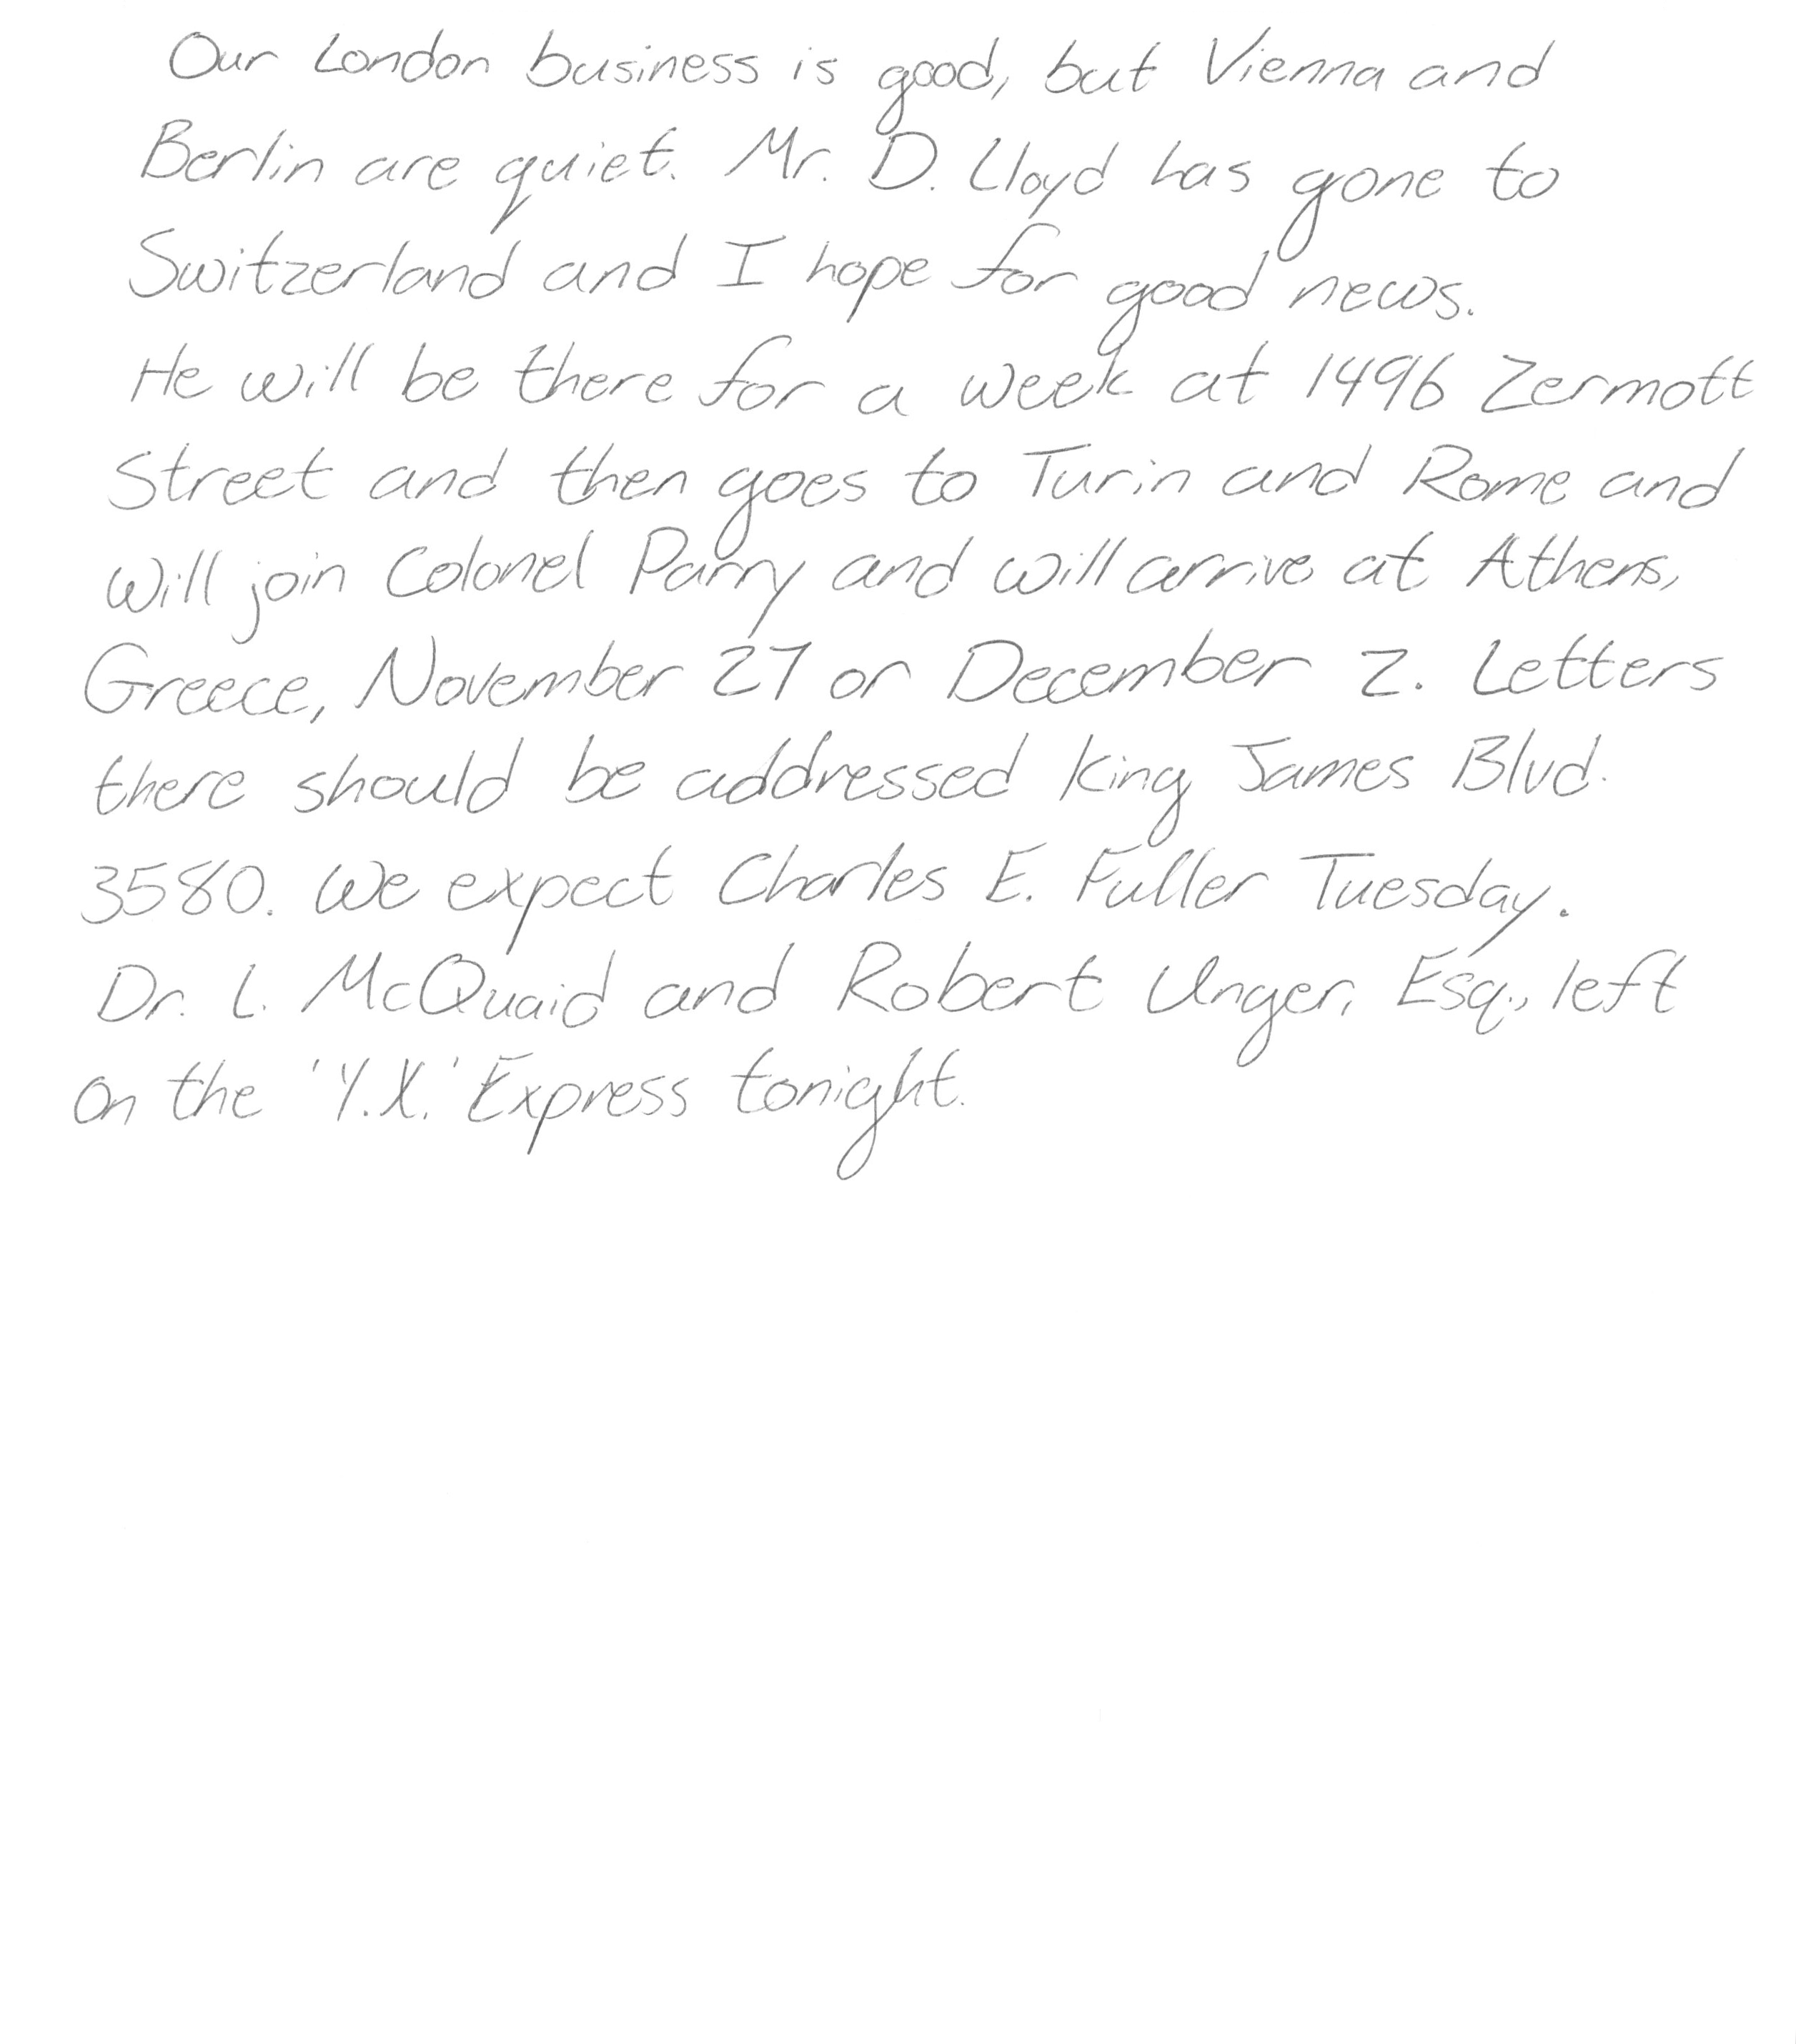 Our London business is good, but Vienna and
Berlin are quiet. Mr. D. Lloyd has gone to
Switzerland and I hope for good news.
He will be there for a week at 1496 Zermott
Street and then goes to Turin and Rome and
will join Colonel Parry and will arrive at Athens,
Greece, November 27 or December 2. Letters
there should be addressed King James Blvd.
3580. We expect Charles E. Fuller Tuesday.
Dr. L. McQuaid and Robert Unger, Esq., left
on the 'Y.X.' Express tonight.